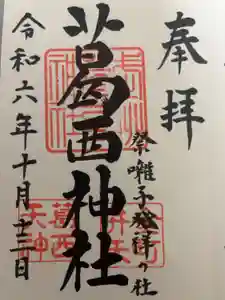 奉拝
祭囃子発祥の社
葛西神社
令和六年十月十三日
葛西
天神